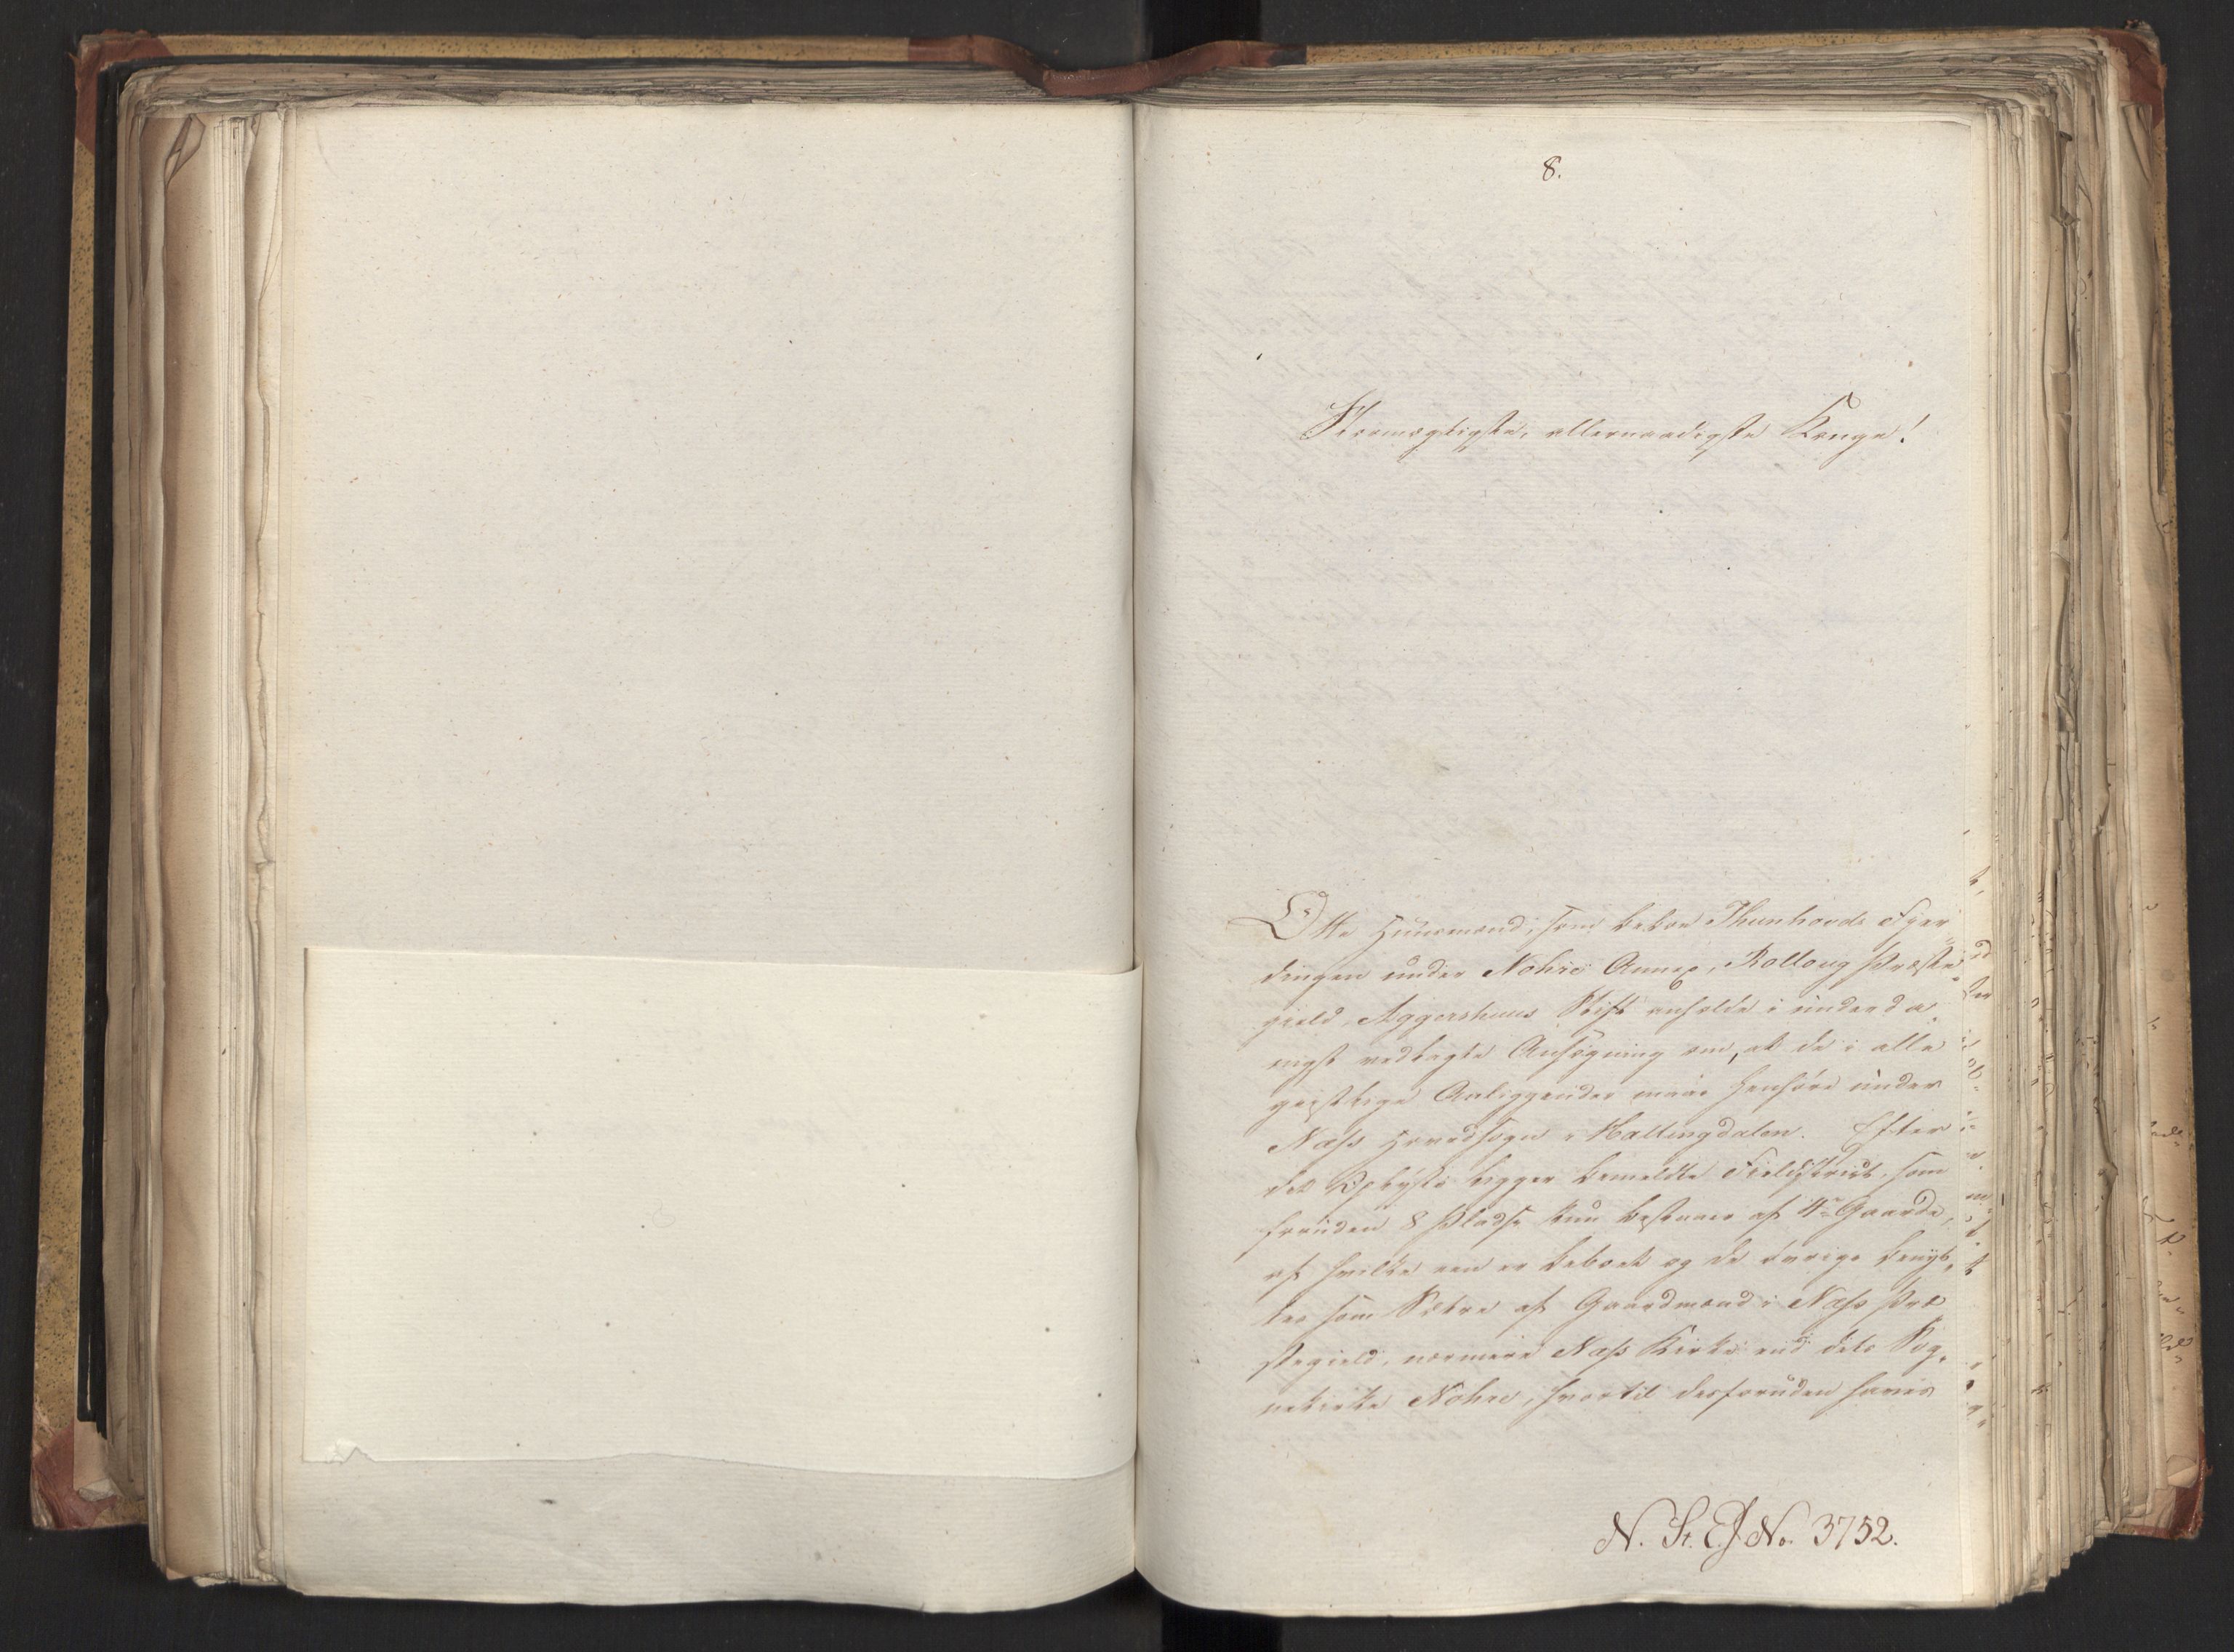 8.
Stormægtigste, allernaadigste Konge!
Otte Huusmænd, som beboe Thunhovds Fjer-
dingen under Nohre Annex, Rollaug Præste-
gield, Aggershuus Stift anholde i underda-
nigst vedlagte Ansøgning om, at de i alle
geistlige Anliggender maae henhøre under
Næss Hovedsogn i Hallingdalen. Efter
det Oplyste ligger bemeldte Fielddistrict, som
foruden 8 Pladse kun bestaaer af 4re Gaarde,
af hvilke een er beboet og de øvrige benyt-
tes som Sætre af Gaardmænd i Næss Præ
stegield, nærmere Næss Kirke end dets Sog-
nekirke Nohre, hvortil desforuden haves
N. St. E. J No. 3752.